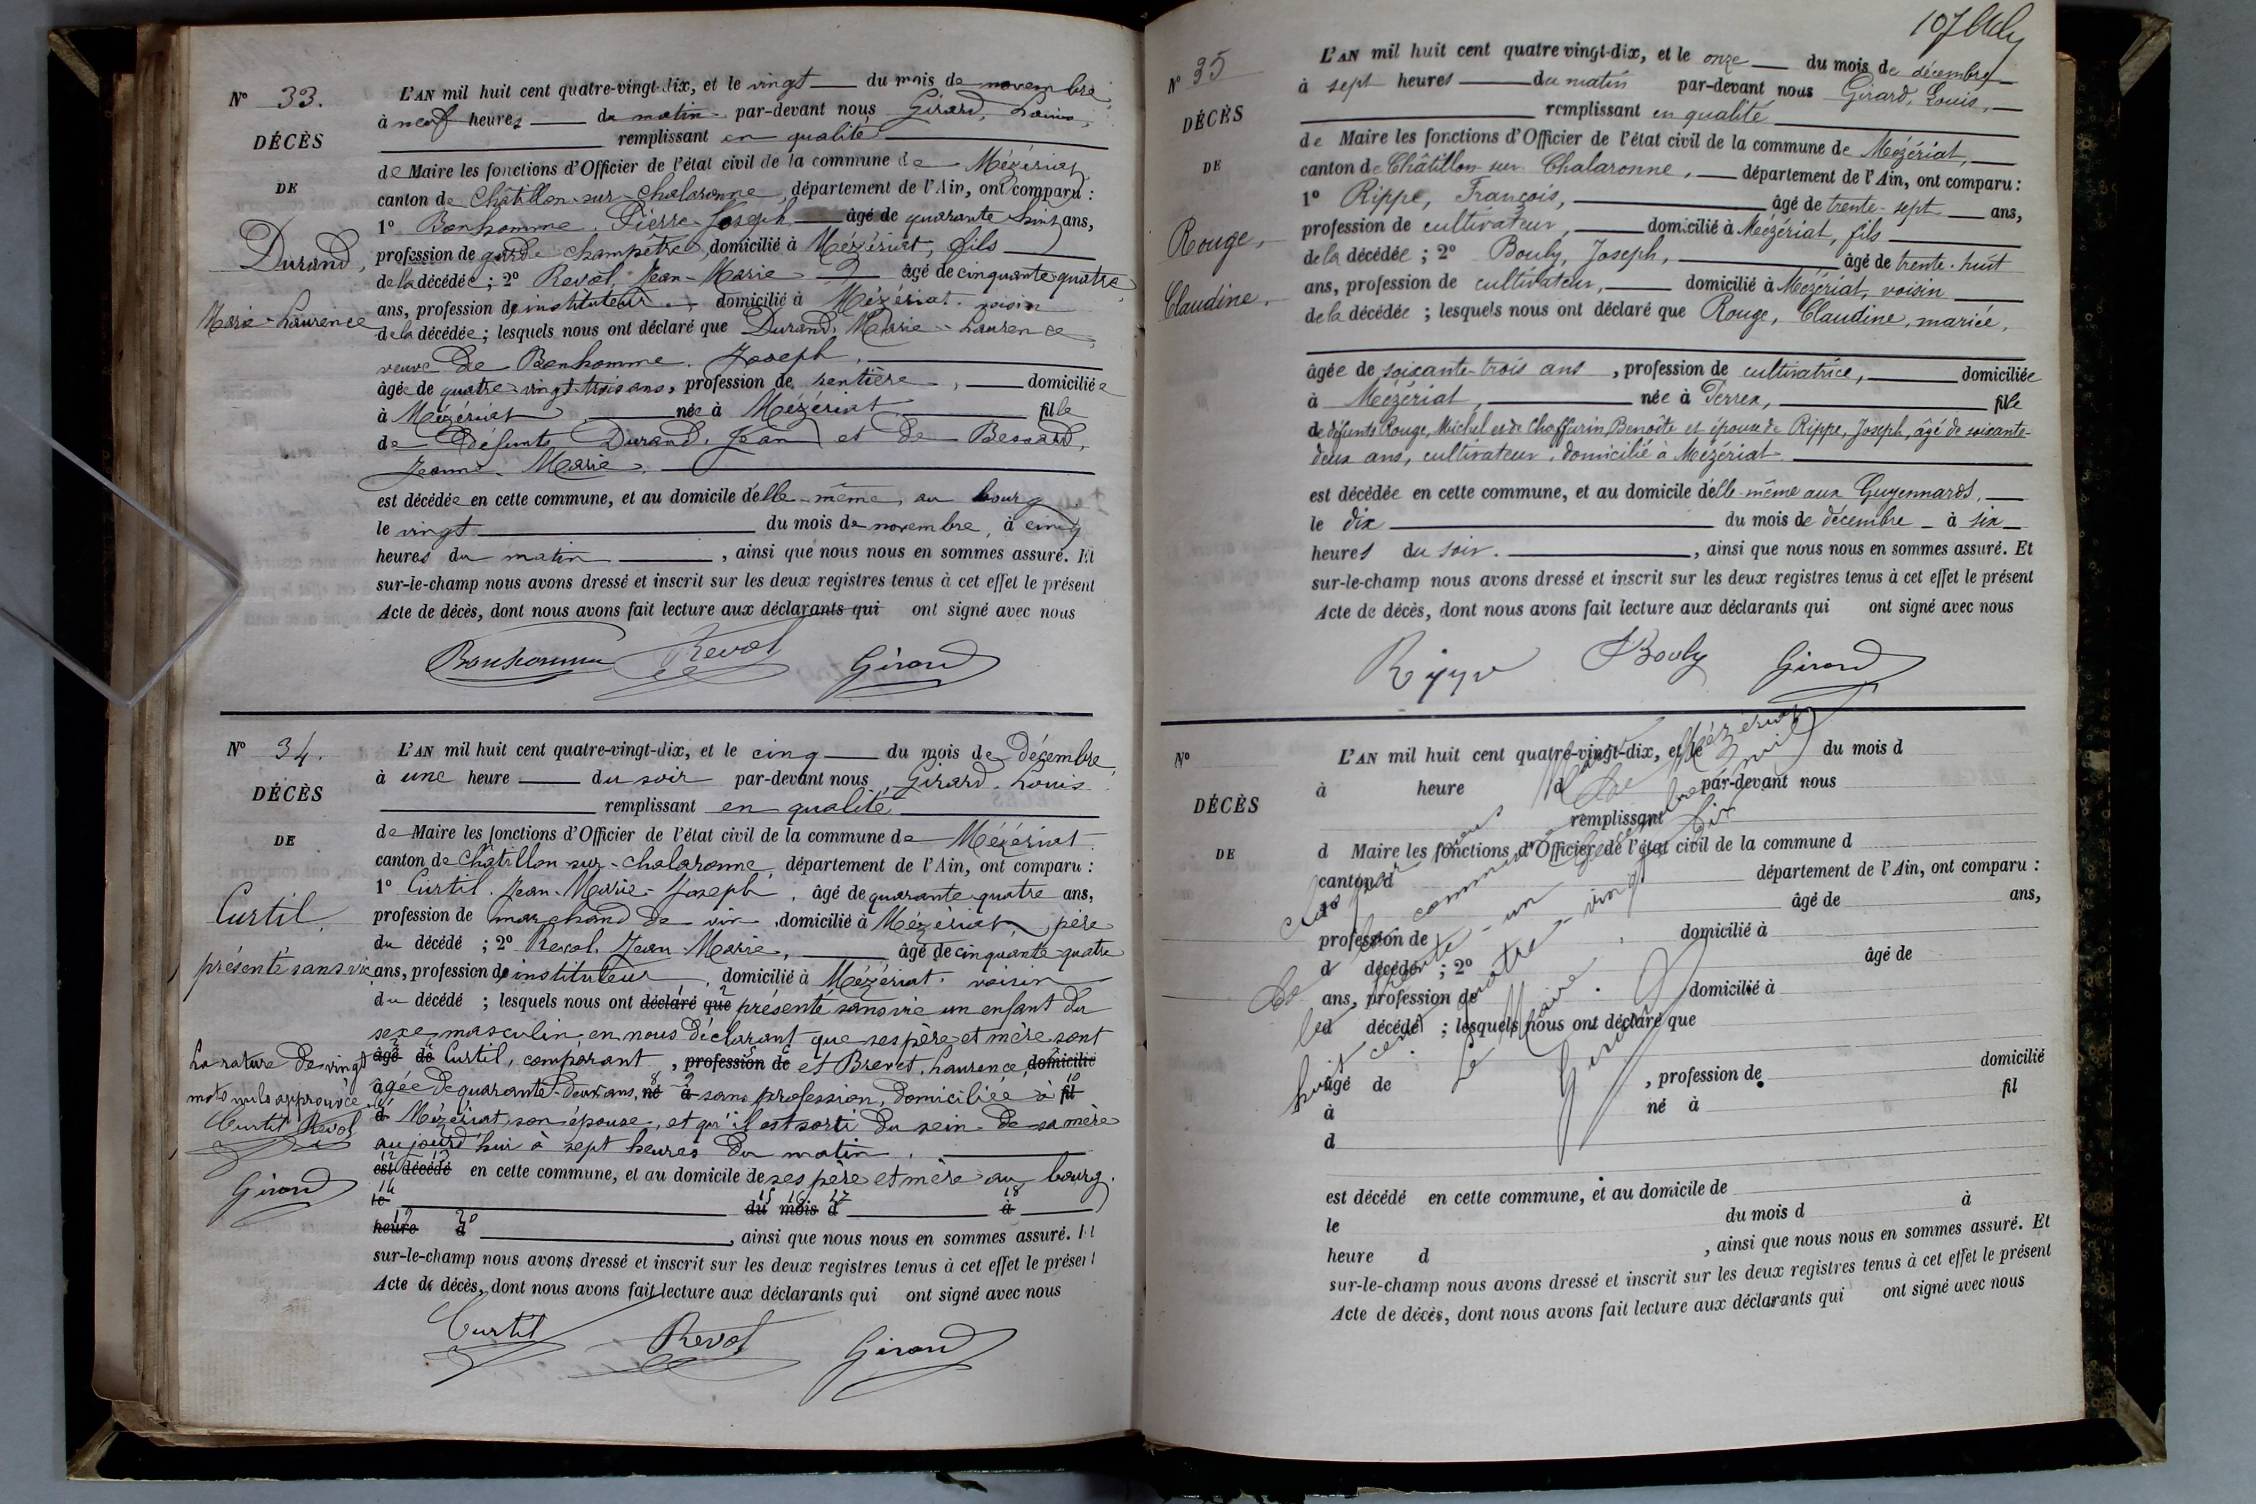 N° 33.
DÉCÈS
DE
Durand,
Marie-Laurence
L'AN mil huit cent quatre-vingt-dix, et le vingt du mois de novembre,
à neuf heures du matin par-devant nous Girard, Louis,
remplissant en qualité
de Maire les fonctions d'Officier de l'état civil de la commune de Mézériat,
canton de Châtillon-sur-Chalaronne, département de l'Ain, ont comparu :
1° Bonhomme, Pierre-Joseph âgé de quarante ans,
profession de garde champêtre, domicilié à Mézériat, fils
de la décédée ; 2° Revol, Jean-Marie âgé de cinquante-quatre
ans, profession de instituteur, domicilié à Mézériat, voisin
de la décédée ; lesquels nous ont déclaré que Durand, Marie-Laurence,
veuve de Bonhomme, Joseph,
âgée de quatre-vingt-trois ans, profession de rentière, domiciliée
à Mézériat née à Mézériat fille
de défunts Durand, Jean et de Bessard,
Jeanne-Marie,
est décédée en cette commune, et au domicile d'elle-même, au bourg
le vingt du mois de novembre, à cinq
heures du matin, ainsi que nous nous en sommes assuré. Et
sur-le-champ nous avons dressé et inscrit sur les deux registres tenus à cet effet le présent
Acte de décès, dont nous avons fait lecture aux déclarants qui ont signé avec nous
Bonhomme Revol Girard
N° 34.
DÉCÈS
DE
Curtil,
présenté sans vie
L'AN mil huit cent quatre-vingt-dix, et le cinq du mois de décembre,
à une heure du soir par-devant nous Girard, Louis
remplissant en qualité
de Maire les fonctions d'Officier de l'état civil de la commune de Mézériat
canton de Châtillon-sur-Chalaronne, département de l'Ain, ont comparu :
1° Curtil, Jean-Marie-Joseph, âgé de quarante quatre ans,
profession de marchand de vin, domicilié à Mézériat, père
du décédé ; 2° Revol, Jean-Marie, âgé de cinquante-quatre
ans, profession de instituteur, domicilié à Mézériat, voisin
du décédé ; lesquels nous ont déclaré que présenté sans vie un enfant du
sexe masculin en nous déclarant que ses père et mère sont
âgé de Curtil, comparant, profession de et Brevet, Laurence, domicilié
âgée de quarante-deux ans, né à sans profession, domiciliée à fil
d Mézériat, son épouse, et qu'il est sorti du sein de sa mère
aujourd'hui à sept heures du matin.
est décédé en cette commune, et au domicile de ses père et mère au bourg.
le du mois d à
heure d, ainsi que nous nous en sommes assuré. Et
sur-le-champ nous avons dressé et inscrit sur les deux registres tenus à cet effet le présent
Acte de décès, dont nous avons fait lecture aux déclarants qui ont signé avec nous
La rature de vingt
mots nuls approuvée
Curtil Revol
Girard
Curtil Revol Girard
107
N° 35
DÉCÈS
DE
Rouge,
Claudine,
L'AN mil huit cent quatre vingt-dix, et le onze du mois de décembre
à sept heures du matin par-devant nous Girard, Louis,
remplissant en qualité
de Maire les fonctions d'Officier de l'état civil de la commune de Mézériat,
canton de Châtillon sur Chalaronne, département de l'Ain, ont comparu :
1° Rippe, François, âgé de trente-sept ans,
profession de cultivateur, domicilié à Mézériat, fils
de la décédée ; 2° Bouly, Joseph, âgé de trente-huit
ans, profession de cultivateur, domicilié à Mézériat, voisin
de la décédée ; lesquels nous ont déclaré que Rouge, Claudine, mariée,
âgée de soixante-trois ans, profession de cultivatrice, domiciliée
à Mézériat, née à Perrex, fille
de défunts Rouge, Michel et de Chaffurin, Benoîte et épouse de Rippe, Joseph, âgé de soixante-
deux ans, cultivateur, domicilié à Mézériat
est décédée en cette commune, et au domicile d'elle-même aux Guyennards,
le dix du mois de décembre à six
heures du soir, ainsi que nous nous en sommes assuré. Et
sur-le-champ nous avons dressé et inscrit sur les deux registres tenus à cet effet le présent
Acte de décès, dont nous avons fait lecture aux déclarants qui ont signé avec nous
Rippe Bouly Girard
N°
DÉCÈS
DE
L'AN mil huit cent quatre-vingt-dix, et le du mois d
à heure d par-devant nous
remplissant
d Maire les fonctions d'Officier de l'état civil de la commune d
canton d département de l'Ain, ont comparu :
1° âgé de ans,
profession de domicilié à
d décédé ; 2° âgé de
ans, profession de domicilié à
d décédé ; lesquels nous ont déclaré que
âgé de, profession de domicilié
à né à fil
d
est décédé en cette commune, et au domicile de
le du mois d à
heure d, ainsi que nous nous en sommes assuré. Et
sur-le-champ nous avons dressé et inscrit sur les deux registres tenus à cet effet le présent
Acte de décès, dont nous avons fait lecture aux déclarants qui ont signé avec nous
Clos par nous Maire
de la commune de Mézériat
le trente-un décembre mil
huit cent quatre-vingt-dix
Le Maire.
Girard